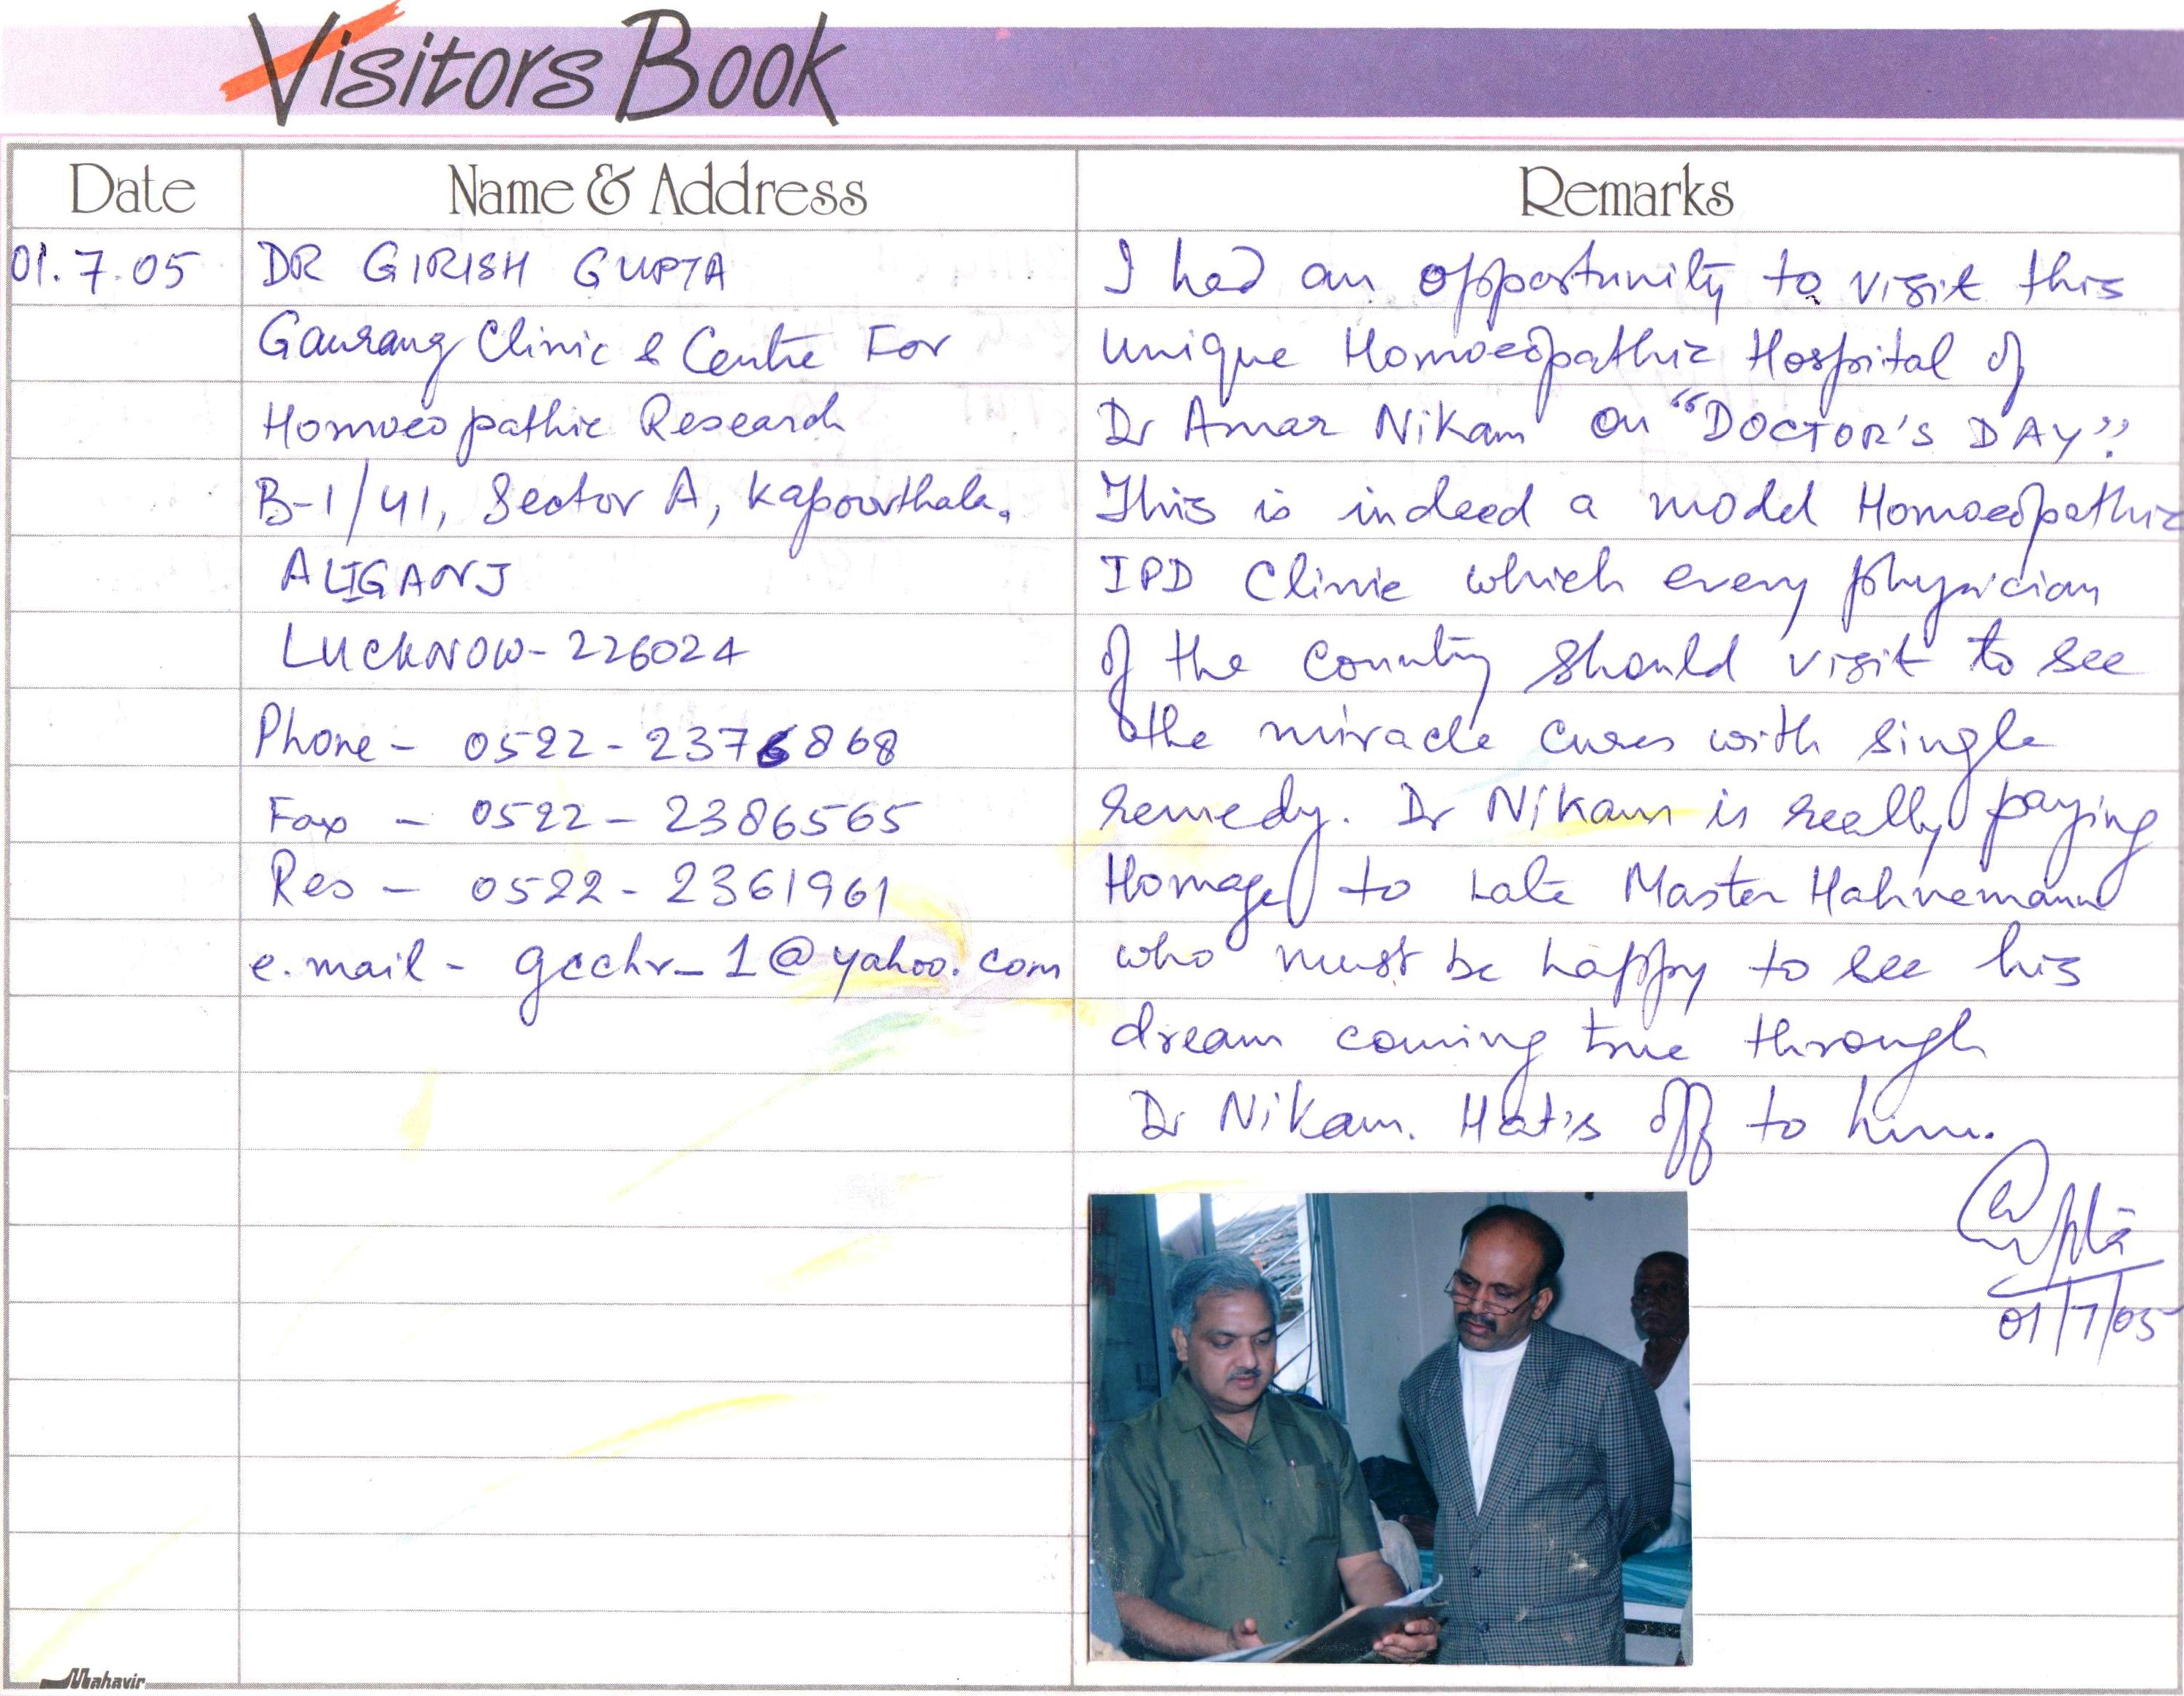 Visitors Book
Date
Name & Address
Remarks
01.7.05
DR GIRISH GUPTA
Gaurang Clinic & Centre For
Homoeopathic Research
B-1/41, Sector A, Kapoorthala,
ALIGANJ
LUCKNOW- 226024
Phone - 0522-2376868
Fax - 0522-2386565
Res - 0522-2361961
e.mail - gcchr_1@yahoo.com
I had an opportunity to visit this
unique Homoeopathic Hospital of
Dr Amar Nikam on "DOCTOR'S DAY".
This is indeed a model Homoeopathic
IPD Clinic which every physician
of the country should visit to see
the miracle cures with single
remedy. Dr Nikam is really paying
Homage to Late Master Hahnemann
who must be happy to see his
dream coming true through
Dr Nikam. Hat's off to him.
Gupta
01/7/05
Mahavir